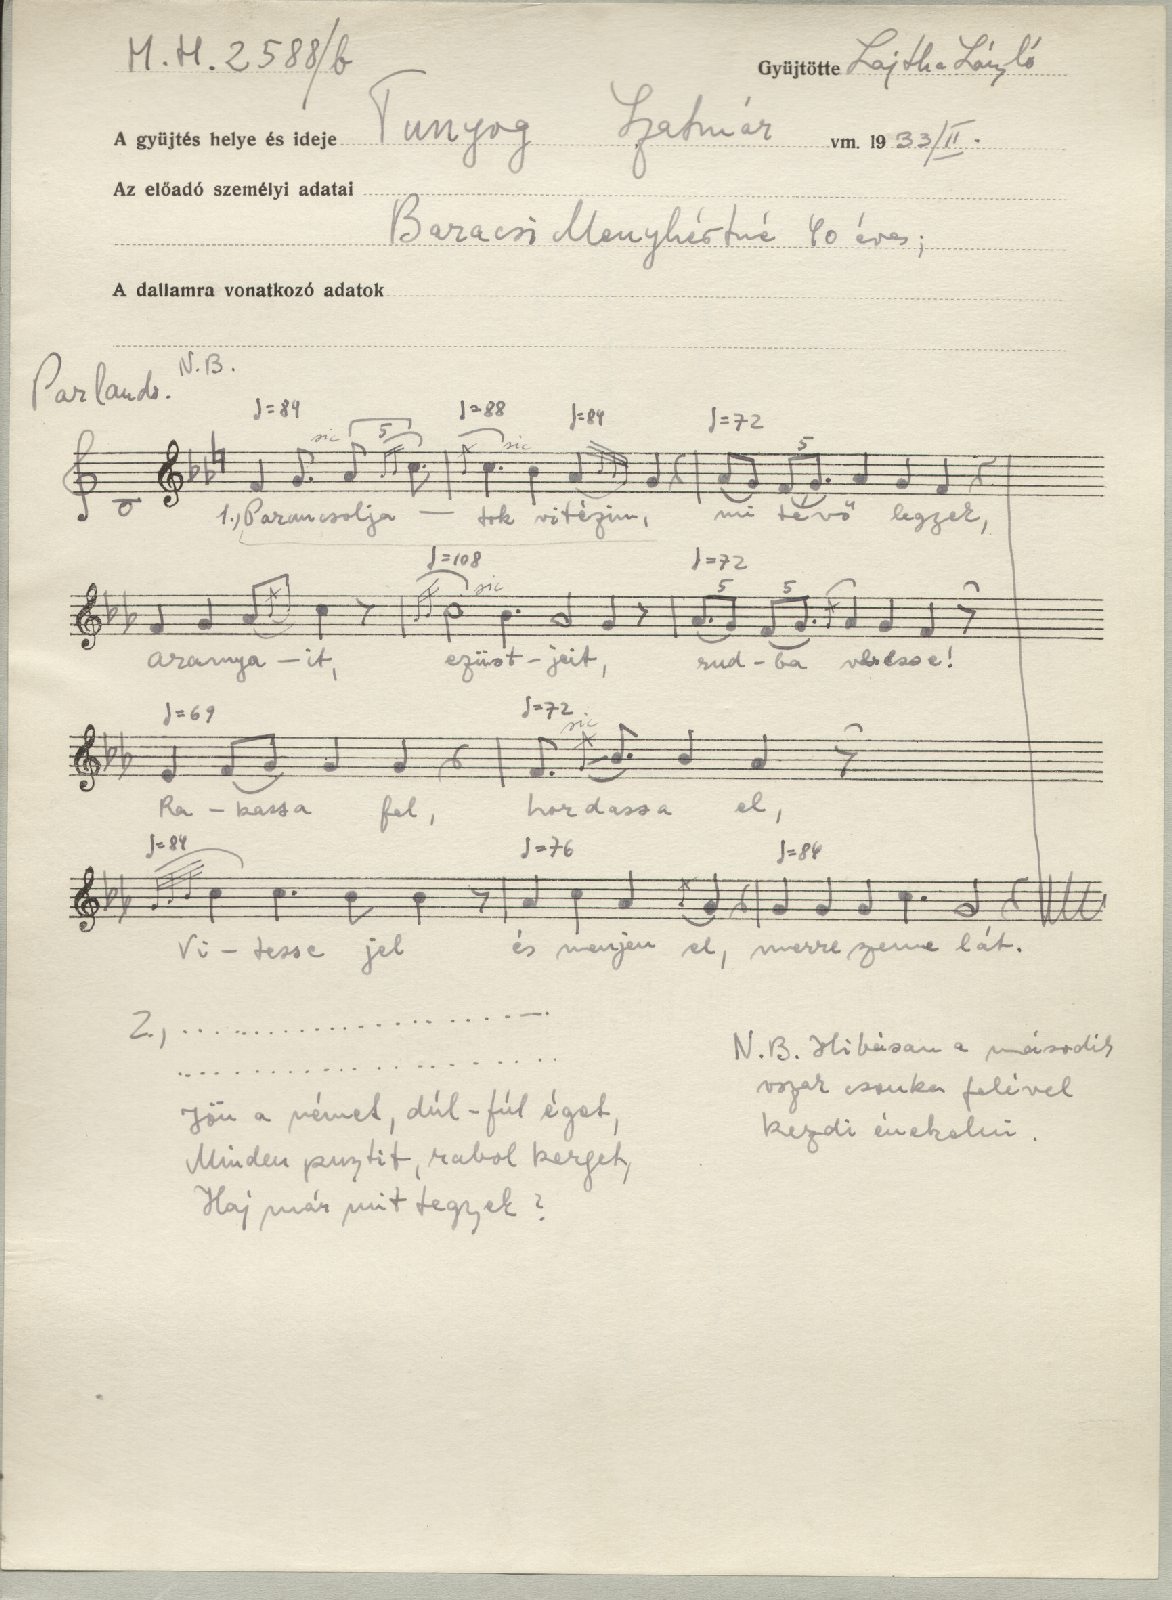 M.H. 2588/b
Gyüjtötte Lajtha László
A gyüjtés helye és ideje Tunyog Szatmár vm. 1933/II.
Az előadó személyi adatai
Baracsi Menyhértné 40 éves;
A dallamra vonatkozó adatok
Parlando. N.B.
♩=84 ♩=88 ♩=84 ♩=72
sic 5 sic 5
1., Parancsolja — tok vitézim, mi tévő legyek,
♩=108 ♩=72
sic 5 5
aranya – it, ezüst – jeit, rud – ba veresse!
♩=69 ♩=72
sic
Ra – kassa fel, hordassa el,
♩=84 ♩=76 ♩=84
Vi – tesse fel és menjen el, merre szeme lát.
2., ..................
..................
Jön a német, dúl-fúl éget,
Minden pusztit, rabol kerget,
Haj már mit tegyek?
N.B. Hibásan a második
vszak csonka felével
kezdi énekelni.